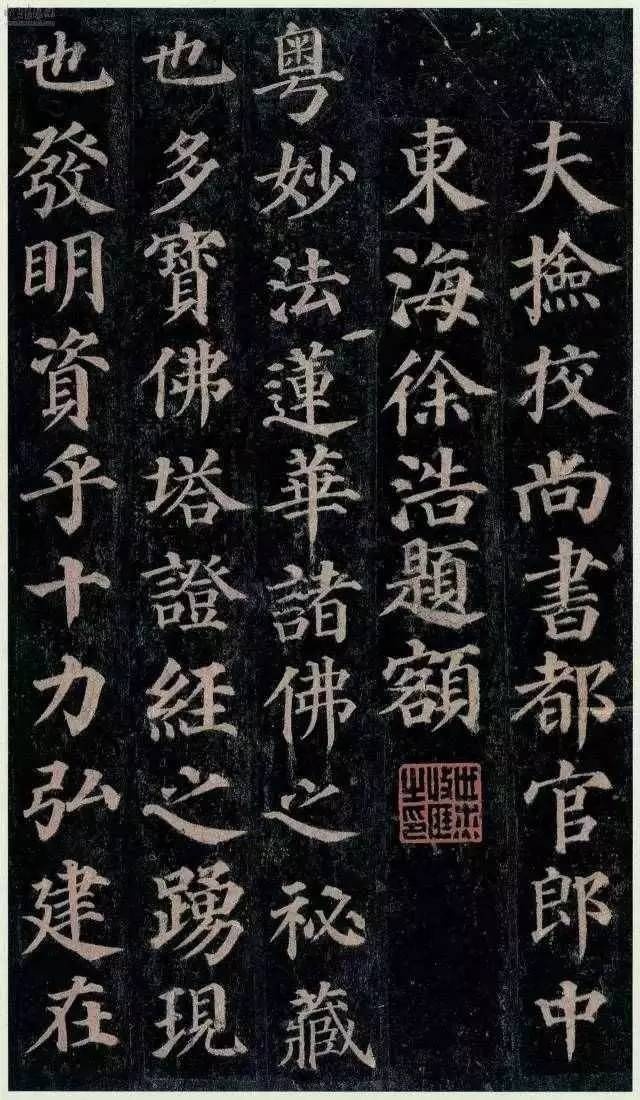 夫撿挍尚書都官郎中
東海徐浩題額
粵妙法蓮華諸佛之祕藏
也多寶佛塔證経之踴現
也發明資乎十力弘建在